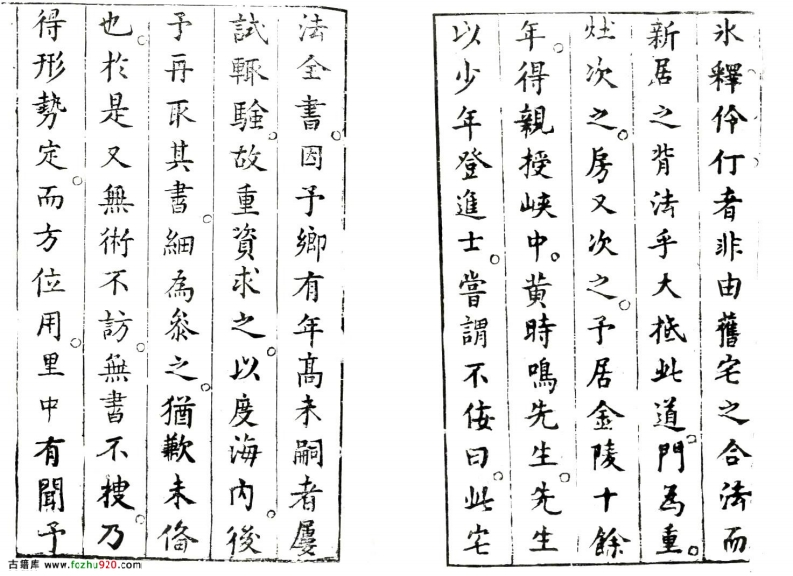 氷釋伶仃者非由舊宅之合法而
新居之背法乎大抵此道門為重。
灶次之。房又次之。予居金陵十餘
年。得親授峽中。黄時鳴先生。先生
以少年登進士。嘗謂不佞曰。此宅
法全書。因予鄉有年高未嗣者屢
試輒驗。故重資求之。以度海內。後
予再取其書。細為叅之。猶歉未俻
也。扵是又無術不訪。無書不搜。乃
得形勢定。而方位用。里中有聞予
古籍库 www.fczhu920.com